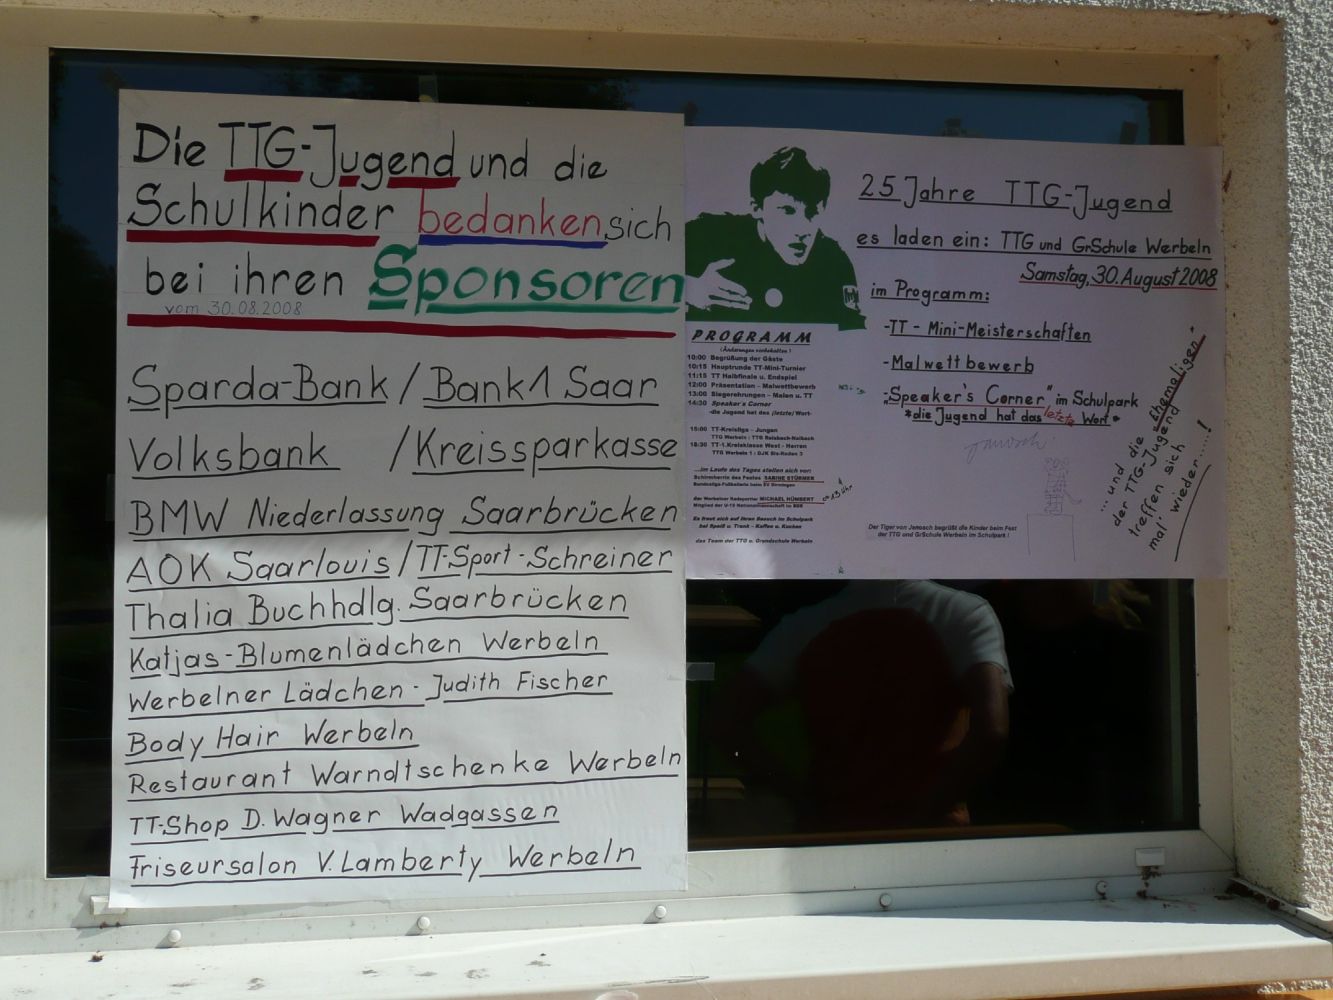 Die TTG-Jugend und die
Schulkinder bedanken sich
bei ihren Sponsoren
vom 30.08.2008
Sparda-Bank / Bank1 Saar
Volksbank / Kreissparkasse
BMW Niederlassung Saarbrücken
AOK Saarlouis / TT-Sport-Schreiner
Thalia Buchhdlg. Saarbrücken
Katjas-Blumenlädchen Werbeln
Werbelner Lädchen - Judith Fischer
Body Hair Werbeln
Restaurant Warndtschenke Werbeln
TT-Shop D. Wagner Wadgassen
Friseursalon V. Lamberty Werbeln
25 Jahre TTG-Jugend
es laden ein: TTG und GrSchule Werbeln
Samstag, 30. August 2008
im Programm:
-TT - Mini-Meisterschaften
-Malwettbewerb
-„Speaker's Corner" im Schulpark
*die Jugend hat das letzte Wort*
...und die "Ehemaligen"
der TTG-Jugend
treffen sich
mal' wieder...!
Der Tiger von Janosch begrüßt die Kinder beim Fest
der TTG und GrSchule Werbeln im Schulpark !
PROGRAMM
(Änderungen vorbehalten !)
10:00 Begrüßung der Gäste
10:15 Hauptrunde TT-Mini-Turnier
11:15 TT Halbfinale u. Endspiel
12:00 Präsentation - Malwettbewerb
13:00 Siegerehrungen - Malen u. TT
14:30 Speaker's Corner
-die Jugend hat das (letzte) Wort-
15:00 TT-Kreisliga - Jungen
TTG Werbeln : TTG Reisbach-Nalbach
18:30 TT-1.Kreisklasse West - Herren
TTG Werbeln 1 : DJK Bis-Roden 3
...im Laufe des Tages stellen sich vor:
Schirmherrin des Festes SABINE STÜRMER
der Werbelner Radsportler MICHAEL HÜMBERT ca 13 Uhr
Mitglied der U-19 Nationalmannschaft im BDR
Es freut sich auf Ihren Besuch im Schulpark
bei Speiß u. Trank - Kaffee u. Kuchen
das Team der TTG u. Grundschule Werbeln